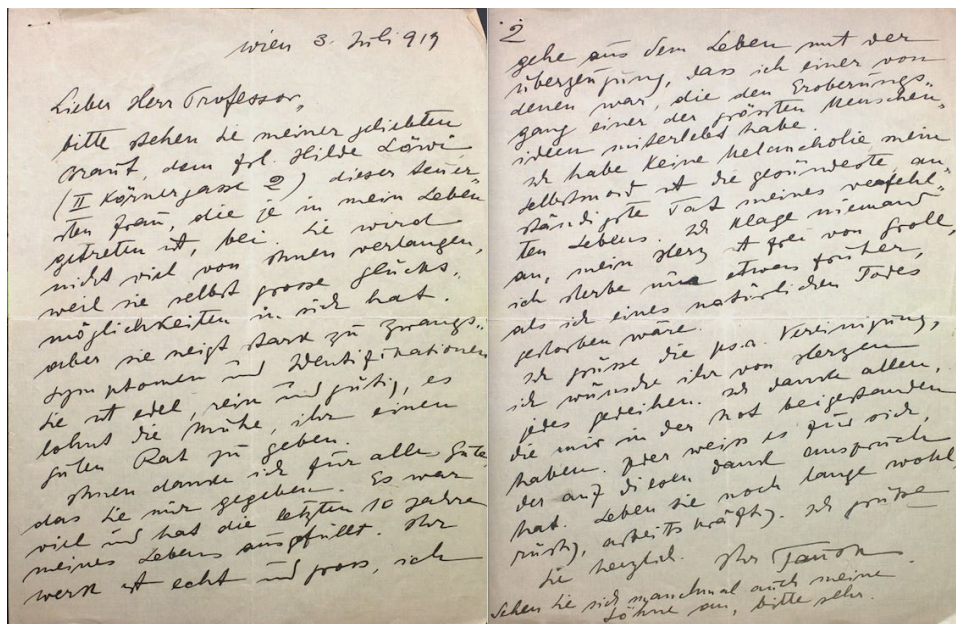 Wien 3. Juli 919
Lieber Herr Professor,
bitte stehen Sie meiner geliebten
Braut, dem Frl. Hilde Löwi
(II Körnergasse 2) dieser teuer-
sten Frau, die je in mein Leben
getreten ist, bei. Sie wird
nicht viel von Ihnen verlangen,
weil sie selbst grosse Glücks-
möglichkeiten in sich hat.
aber sie neigt stark zu Zwangs-
symptomen und Identifikationen
Sie ist edel, rein und gütig, es
lohnt die Mühe, ihr einen
guten Rat zu geben.
Ihnen danke ich für alles Gute,
das Sie mir gegeben. Es war
viel und hat die letzten 10 Jahre
meines Lebens ausgefüllt. Ihr
Werk ist echt und gross, ich
2
gehe aus dem Leben mit der
Überzeugung, dass ich einer von
denen war, die den Eroberungs-
gang einer der grössten Menschen-
ideen miterlebt habe.
Ich habe keine Melancholie, mein
Selbstmord ist die gesündeste, an
ständigste Tat meines verfehl-
ten Lebens. Ich klage niemand
an, mein Herz ist frei von Groll,
ich sterbe nur etwas früher,
als ich eines natürlichen Todes
gestorben wäre.
Ich grüsse die ps.a. Vereinigung,
ich wünsche ihr von Herzen
jedes Gedeihen. Ich danke allen,
die mir in der Not beigestanden
haben. Jeder weiss es für sich,
der auf diesen Dank Anspruch
hat. Leben Sie noch lange wohl,
rüstig, arbeitskräftig. Ich grüsse
Sie herzlich. Ihr Tausk
Sehen Sie sich manchmal auch meine
Söhne an, bitte sehr.